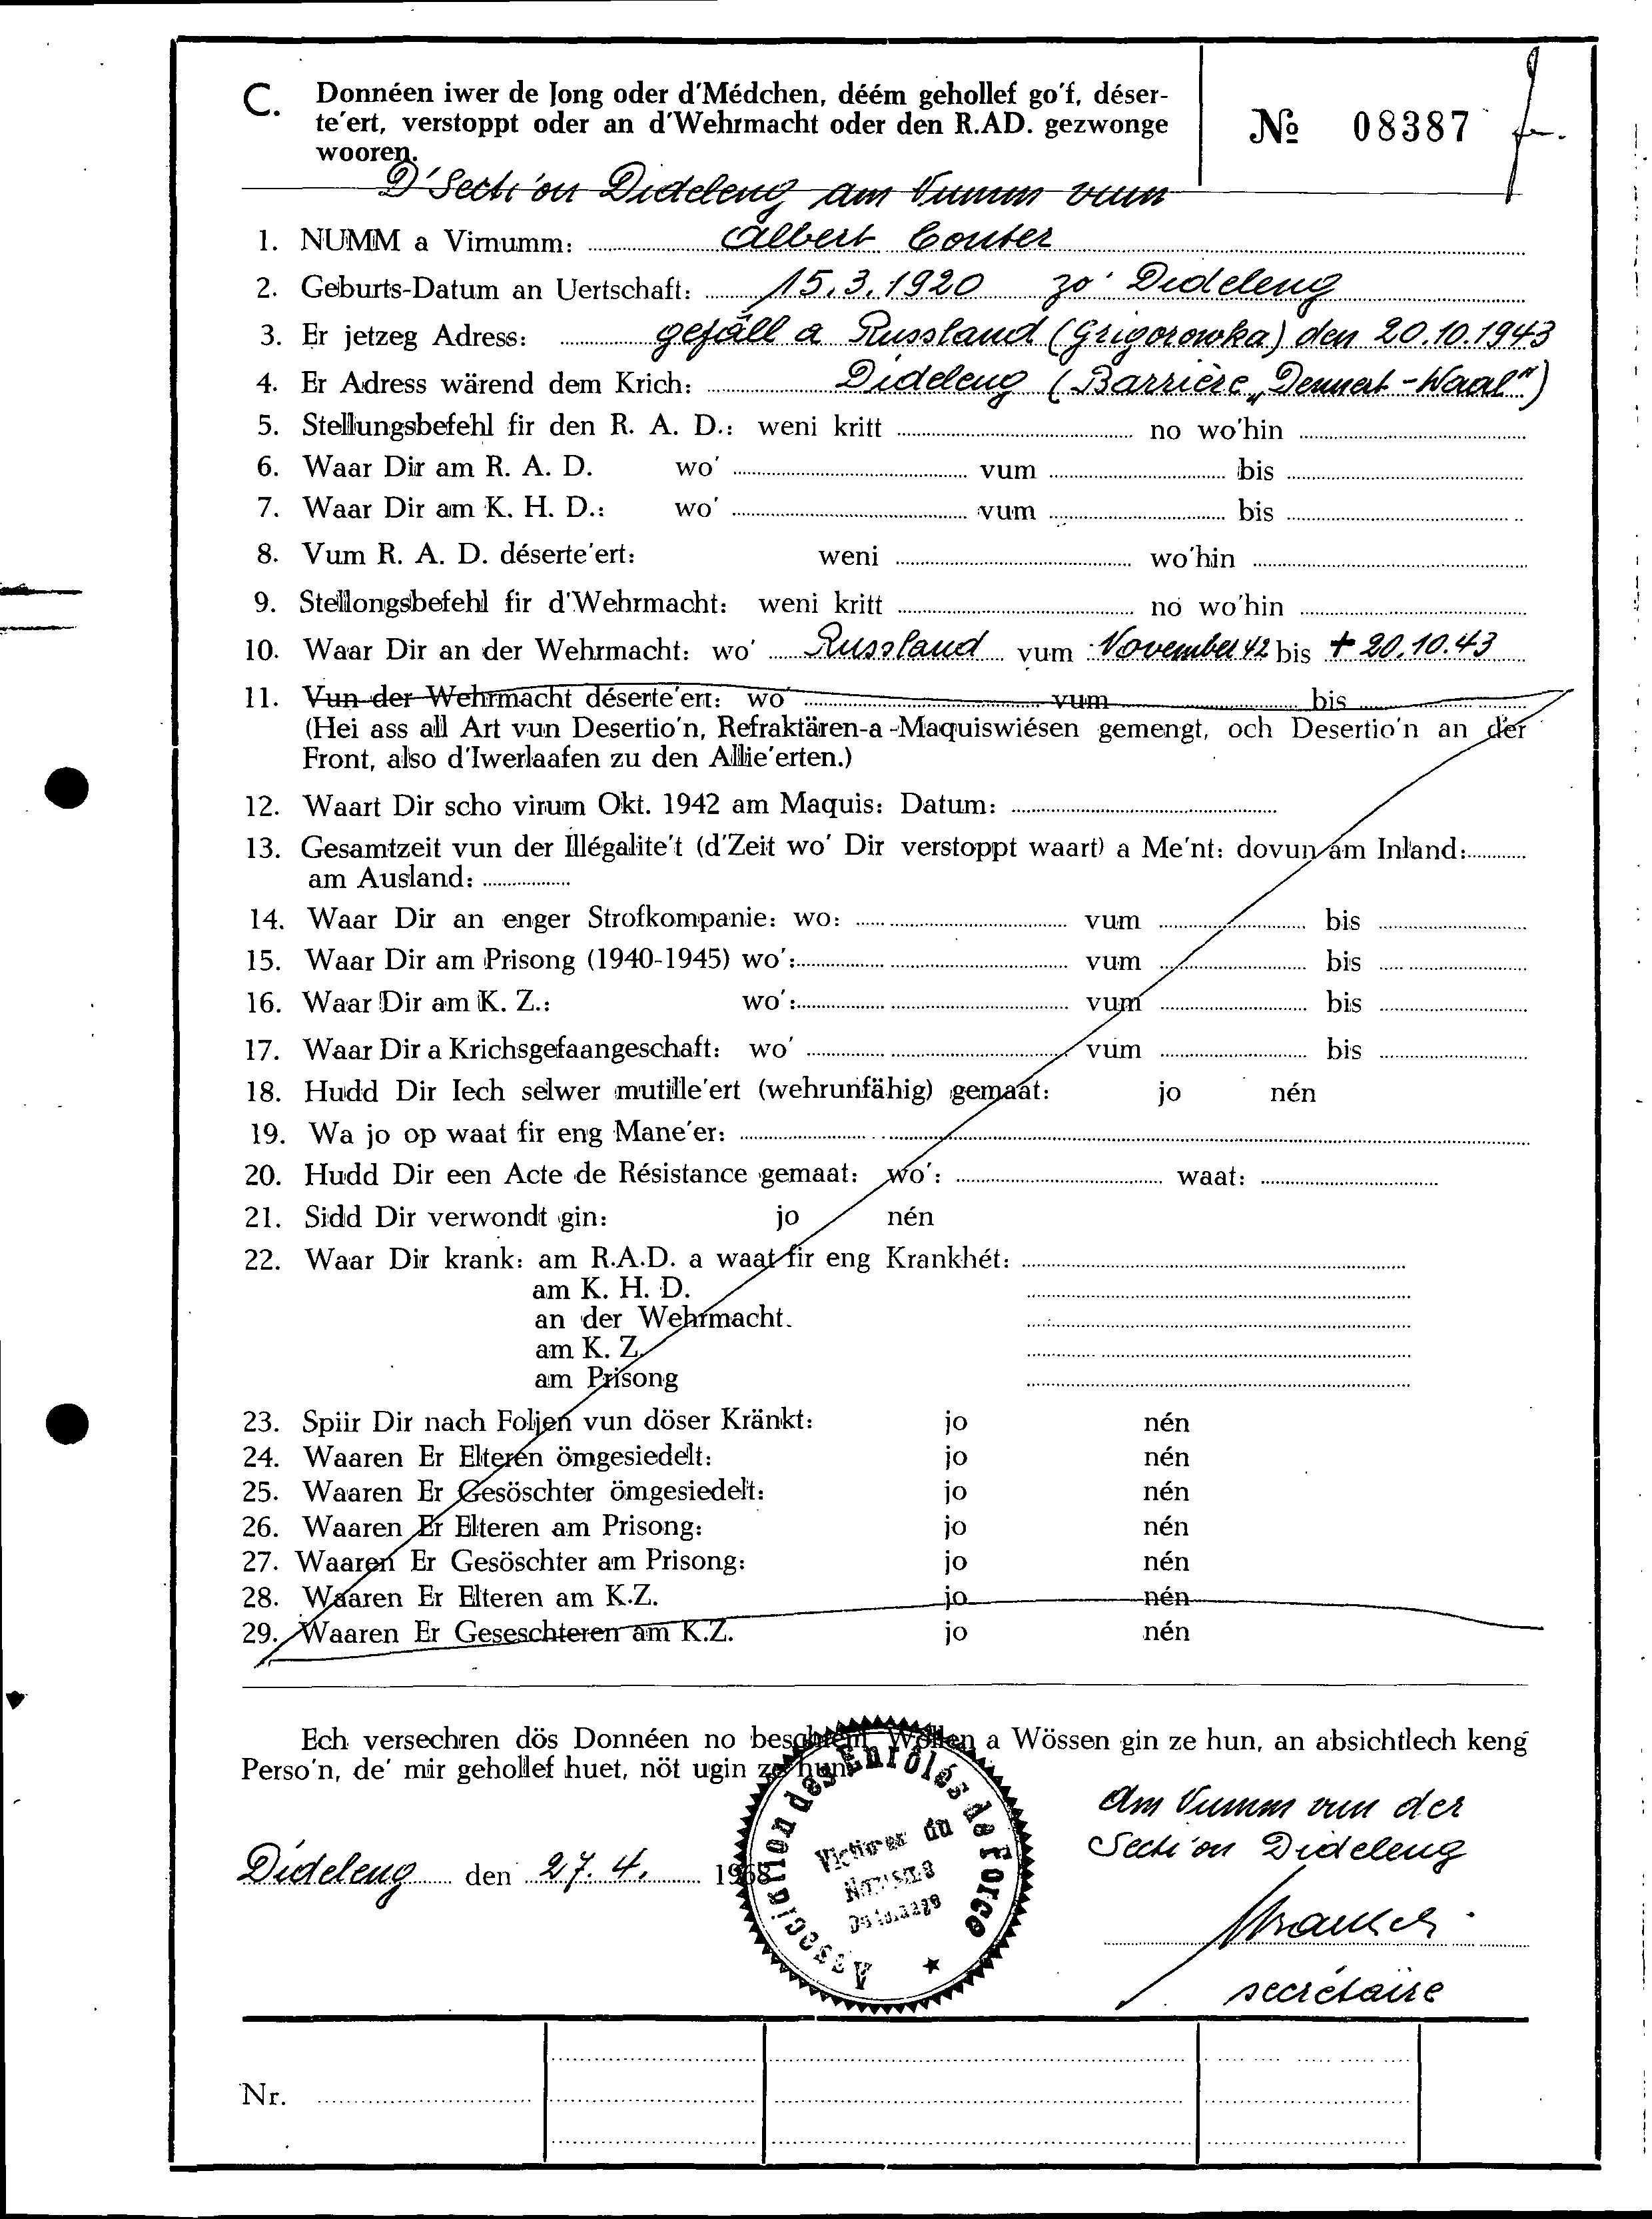 C. Donnéen iwer de Jong oder d'Médchen, déém gehollef go'f, déser-
te'ert, verstoppt oder an d'Wehrmacht oder den R.AD. gezwonge
wooren.
№ 08387
D'Secti'on Dideleng am Numm vum
1. NUMM a Virnumm: Albert Conter
2. Geburts-Datum an Uertschaft: 15.3.1920 zo' Dideleng
3. Er jetzeg Adress: gefall a Russland (Grigorowka) den 20.10.1943
4. Er Adress wärend dem Krich: Dideleng (Barrière „Dennert-Waal")
5. Stellungsbefehl fir den R. A. D.: weni kritt no wo'hin
6. Waar Dir am R. A. D. wo' vum bis
7. Waar Dir am K. H. D.: wo' vum bis
8. Vum R. A. D. déserte'ert: weni wo'hin
9. Stellongsbefehl fir d'Wehrmacht: weni kritt no wo'hin
10. Waar Dir an der Wehrmacht: wo' Russland vum November 42 bis + 20.10.43
11. Vun der Wehrmacht déserte'ert: wo' vum bis
(Hei ass all Art vun Desertio'n, Refraktären-a-Maquiswiésen gemengt, och Desertio'n an der
Front, also d'Iwerlaafen zu den Allie'erten.)
12. Waart Dir scho virum Okt. 1942 am Maquis: Datum:
13. Gesamtzeit vun der Illégalite't (d'Zeit wo' Dir verstoppt waart) a Me'nt: dovun am Inland:
am Ausland:
14. Waar Dir an enger Strofkompanie: wo: vum bis
15. Waar Dir am Prisong (1940-1945) wo': vum bis
16. Waar Dir am K. Z.: wo': vum bis
17. Waar Dir a Krichsgefaangeschaft: wo' vum bis
18. Hudd Dir Iech selwer mutille'ert (wehrunfähig) gemaat: jo nén
19. Wa jo op waat fir eng Mane'er:
20. Hudd Dir een Acte de Résistance gemaat: wo': waat:
21. Sidd Dir verwondt gin: jo nén
22. Waar Dir krank: am R.A.D. a waat fir eng Krankhét:
am K. H. D.
an der Wehrmacht.
am K. Z.
am Prisong
23. Spiir Dir nach Foljen vun döser Kränkt: jo nén
24. Waaren Er Elteren ömgesiedelt: jo nén
25. Waaren Er Gesöschter ömgesiedelt: jo nén
26. Waaren Er Elteren am Prisong: jo nén
27. Waaren Er Gesöschter am Prisong: jo nén
28. Waaren Er Elteren am K.Z. jo nén
29. Waaren Er Geseschteren am K.Z. jo nén
Ech versechren dös Donnéen no beschtem Wöllen a Wössen gin ze hun, an absichtlech keng
Perso'n, de' mir gehollef huet, nöt ugin ze hun.
Association des Enrôlés de Force
Victimes du
Nazisme
Am Numm vun der
Secti'on Dideleng
Dideleng den 27. 4. 1968
secrétaire
Nr.